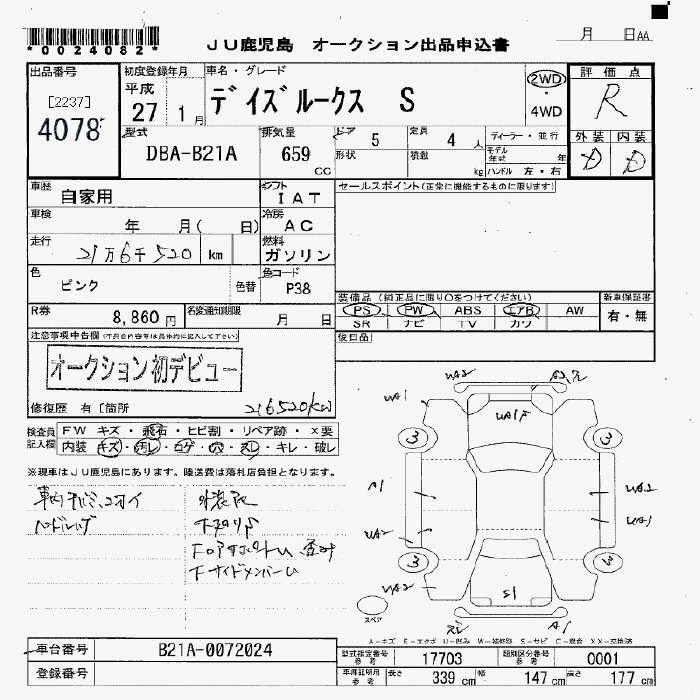 *0024082*
JU鹿児島 オークション出品申込書
月 日AA
出品番号
[2237]
4078
初度登録年月
平成
27 1月
車名・グレード
デイズルークス S
2WD
・
4WD
評価点
R
外装 内装
D D
型式
DBA-B21A
排気量
659
CC
ドア
5
定員
4人
形状
積載
kg
ディーラー・並行
モデル年式 年
ハンドル 左・右
車歴
自家用
シフト
IAT
車検
年 月( 日)
冷房
AC
走行
21万6千520 km
燃料
ガソリン
色
ピンク
色替
色コード
P38
R券
8,860円
名変通知期限
月 日
セールスポイント(正常に機能するものに限ります)
装備品(純正品に限り○をつけてください)
PS PW ABS エアB AW
SR ナビ TV カワ
新車保証書
有・無
後日品
注意事項申告欄
オークション初デビュー
修復歴 有〔箇所
216520km
検査員記入欄
FW キズ・飛石・ヒビ割・リペア跡・×要
内装 キズ・汚レ・コゲ・穴・スレ・キレ・破レ
※現車はJU鹿児島にあります。陸送費は落札店負担となります。
UA2
UA1
UA1F
3 3
A1
UA2
UA2
UA1
UA2
3 3
S1
A1
スペア
A-キズ E-エクボ U-凹み W-補修跡 S-サビ C-腐食 XX-交換済
車台番号
B21A-0072024
登録番号
型式指定番号
参考
17703
類別区分番号
参考
0001
車庫証明用
参考
長さ
339 cm
幅
147 cm
高さ
177 cm